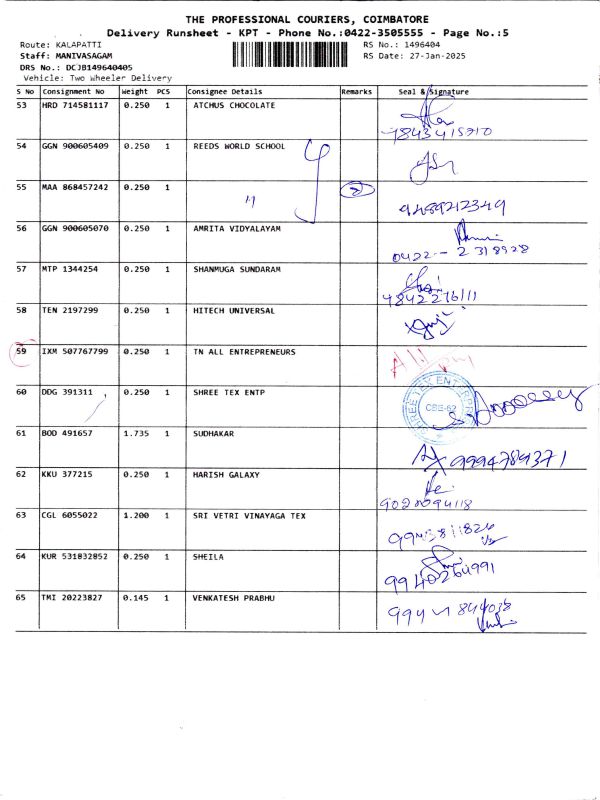 THE PROFESSIONAL COURIERS, COIMBATORE
Delivery Runsheet - KPT - Phone No.:0422-3505555 - Page No.:5
Route: KALAPATTI RS No.: 1496404
Staff: MANIVASAGAM RS Date: 27-Jan-2025
DRS No.: DCJB149640405
Vehicle: Two Wheeler Delivery
S No Consignment No Weight PCS Consignee Details Remarks Seal & Signature
53 HRD 714581117 0.250 1 ATCHUS CHOCOLATE
54 GGN 900605409 0.250 1 REEDS WORLD SCHOOL
55 MAA 868457242 0.250 1 2 9489212349
56 GGN 900605070 0.250 1 AMRITA VIDYALAYAM
0422 - 2318928
57 MTP 1344254 0.250 1 SHANMUGA SUNDARAM
58 TEN 2197299 0.250 1 HITECH UNIVERSAL
59 IXM 507767799 0.250 1 TN ALL ENTREPRENEURS
60 DDG 391311 0.250 1 SHREE TEX ENTP
SHREE TEX ENTERPRI
CBE-62
61 BOD 491657 1.735 1 SUDHAKAR
9994789371
62 KKU 377215 0.250 1 HARISH GALAXY
63 CGL 6055022 1.200 1 SRI VETRI VINAYAGA TEX
64 KUR 531832852 0.250 1 SHEILA
9940264991
65 TMI 20223827 0.145 1 VENKATESH PRABHU